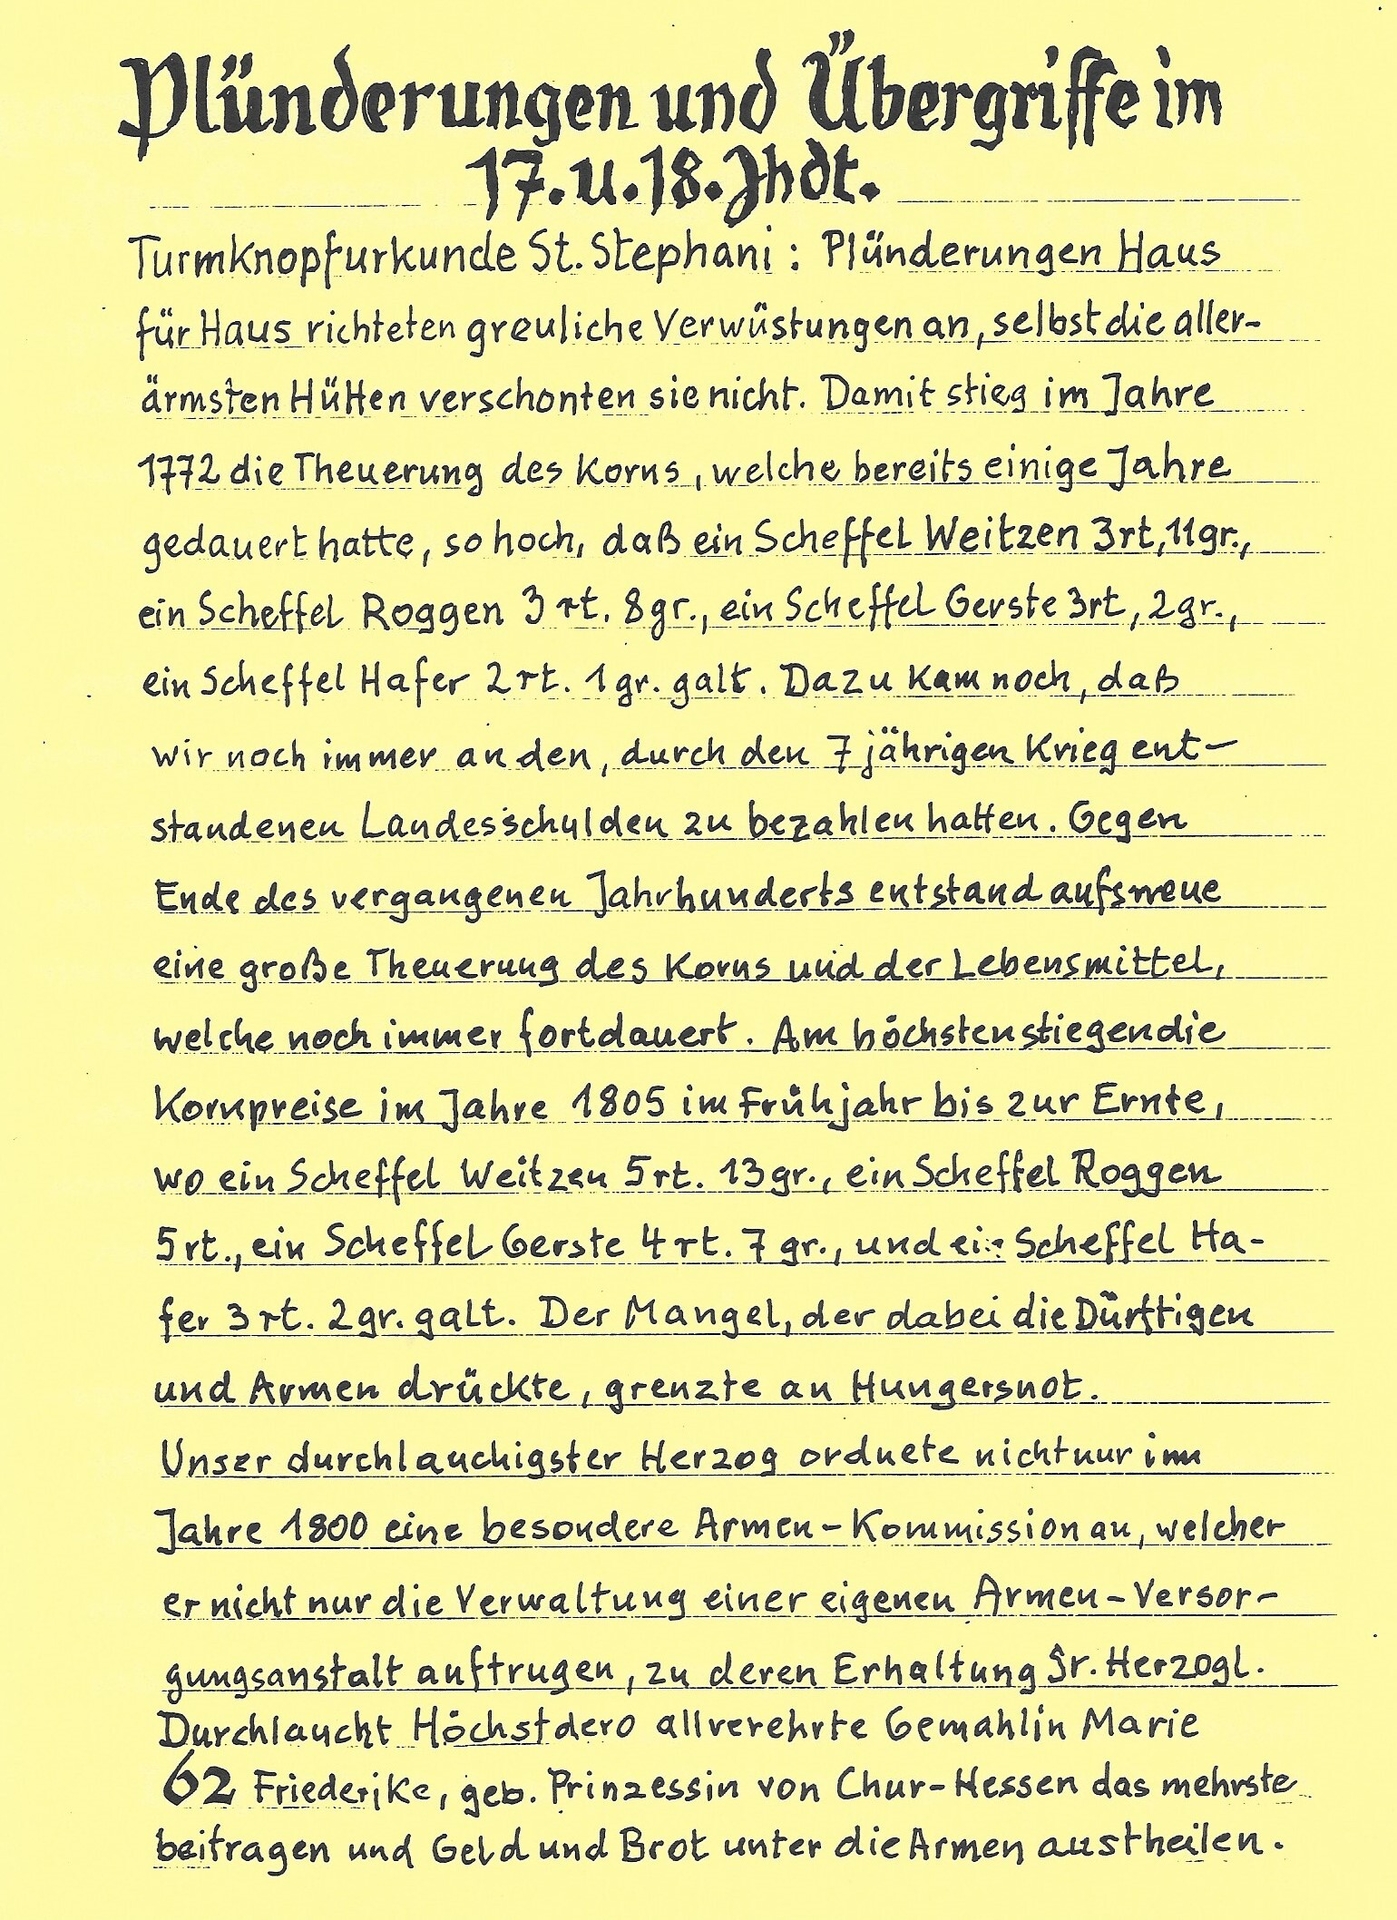 Plünderungen und Übergriffe im
17. u. 18. Jhdt.
Turmknopfurkunde St. Stephani : Plünderungen Haus
für Haus richteten greuliche Verwüstungen an, selbst die aller-
ärmsten Hütten verschonten sie nicht. Damit stieg im Jahre
1772 die Theuerung des Korns, welche bereits einige Jahre
gedauert hatte, so hoch, daß ein Scheffel Weitzen 3rt, 11gr.,
ein Scheffel Roggen 3 rt. 8gr., ein Scheffel Gerste 3rt, 2gr.,
ein Scheffel Hafer 2 rt. 1 gr. galt. Dazu kam noch, daß
wir noch immer an den, durch den 7 jährigen Krieg ent-
standenen Landesschulden zu bezahlen hatten. Gegen
Ende des vergangenen Jahrhunderts entstand aufsneue
eine große Theuerung des Korns und der Lebensmittel,
welche noch immer fortdauert. Am höchsten stiegen die
Kornpreise im Jahre 1805 im Frühjahr bis zur Ernte,
wo ein Scheffel Weitzen 5 rt. 13 gr., ein Scheffel Roggen
5 rt., ein Scheffel Gerste 4 rt. 7 gr., und ein Scheffel Ha-
fer 3 rt. 2 gr. galt. Der Mangel, der dabei die Dürftigen
und Armen drückte, grenzte an Hungersnot.
Unser durchlauchigster Herzog ordnete nicht nur im
Jahre 1800 eine besondere Armen-Kommission an, welcher
er nicht nur die Verwaltung einer eigenen Armen-Versor-
gungsanstalt auftrugen, zu deren Erhaltung Sr. Herzogl.
Durchlaucht Höchstdero allverehrte Gemahlin Marie
62 Friederike, geb. Prinzessin von Chur-Hessen das mehrste
beitragen und Geld und Brot unter die Armen austheilen.